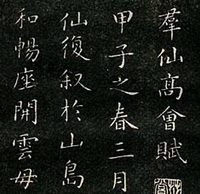 羣仙髙會賦
甲子之春三月
仙復叙於山島
和暢座開雲母